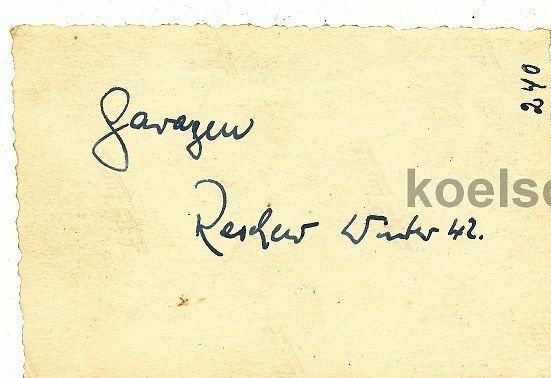 240
Garagen
koelsc
Reschew Winter 42.